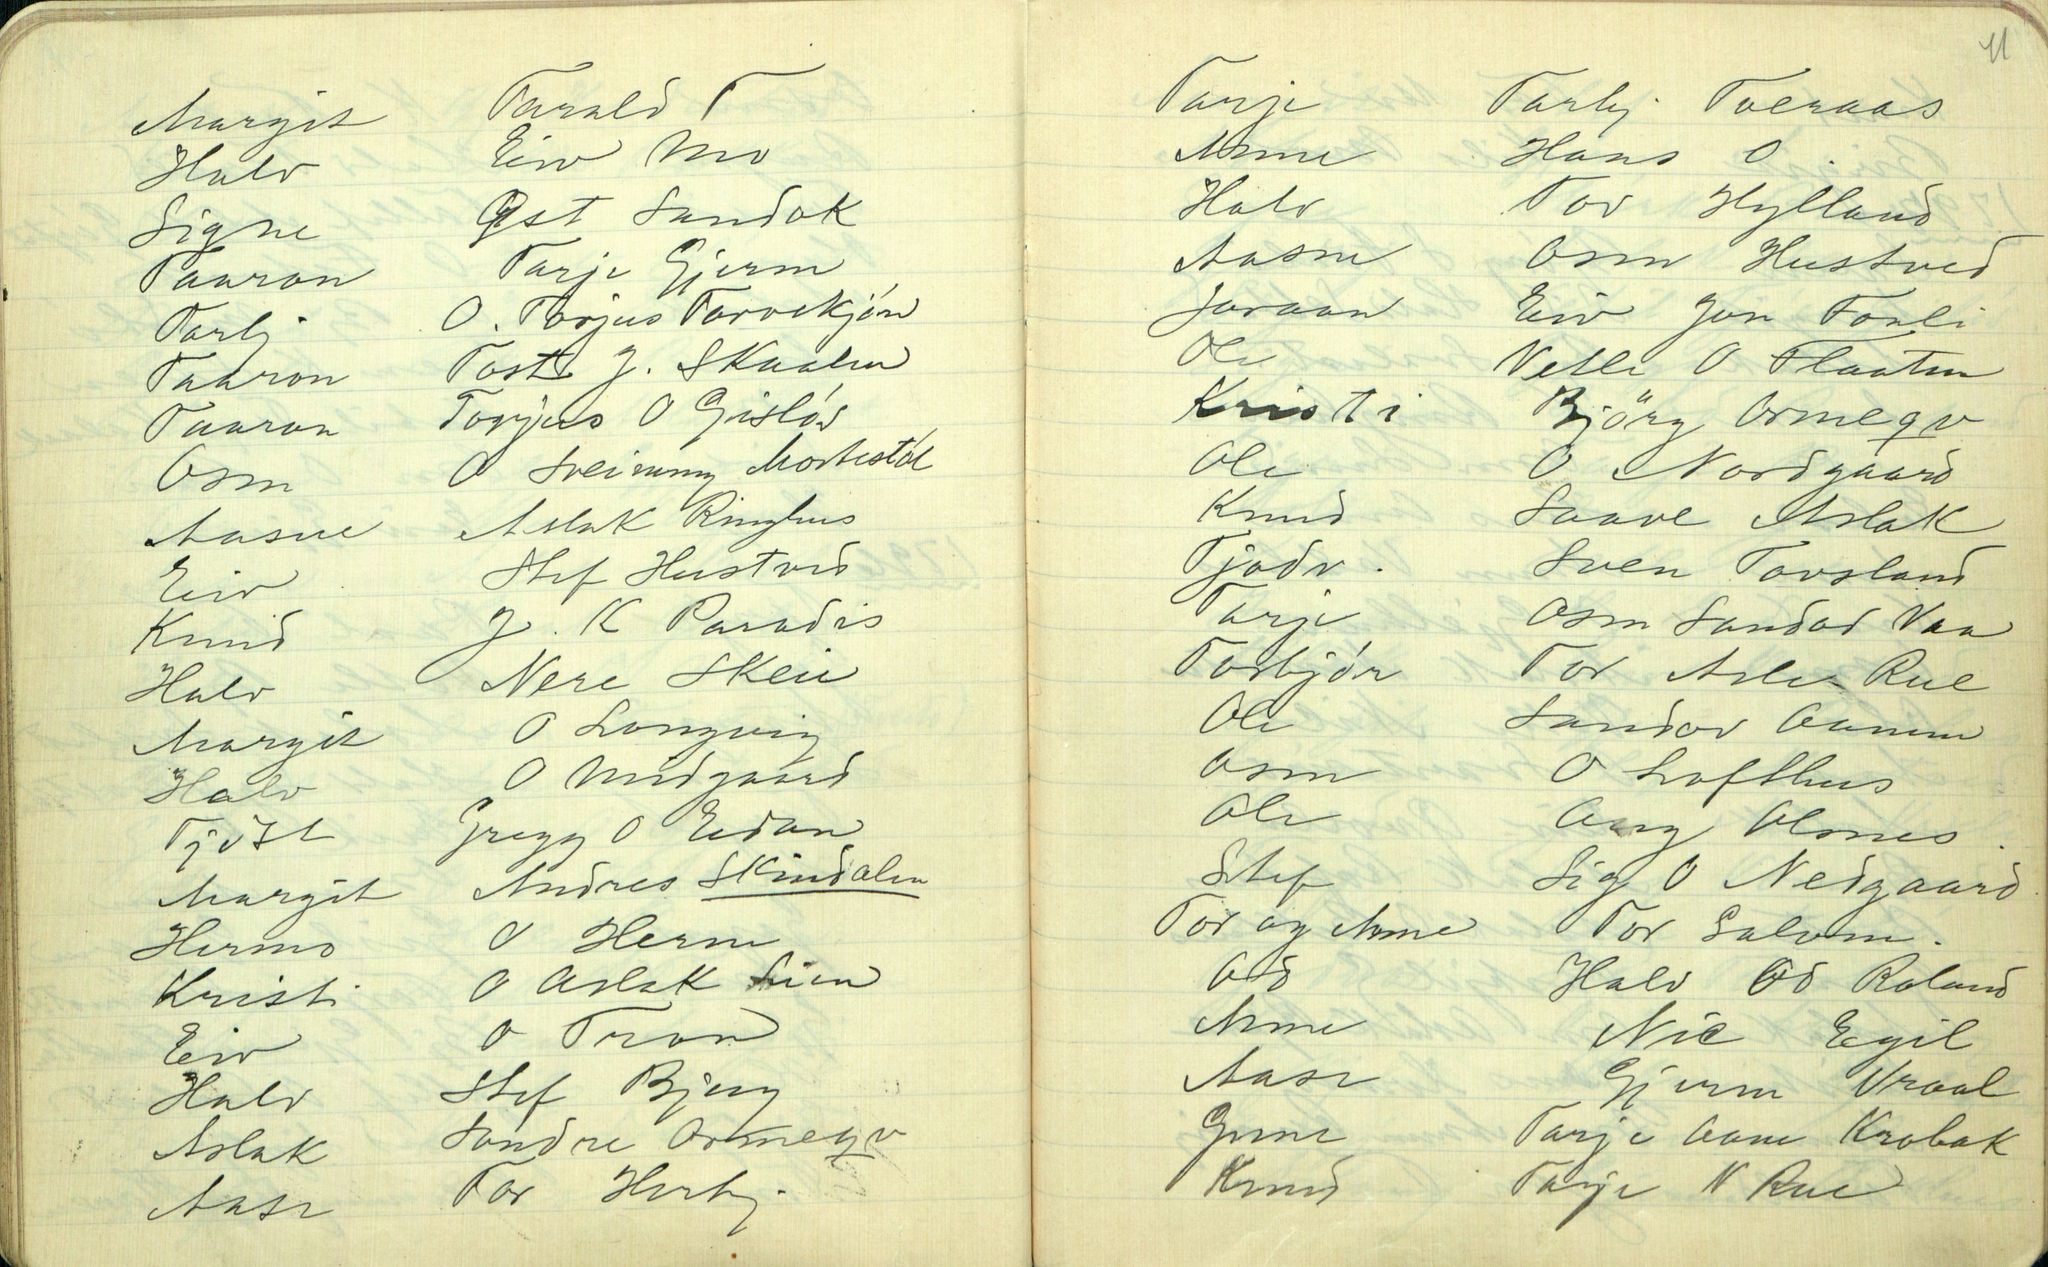 Margit Tarald T
Halv Eiv Mo
Signe Øst Sandok
Taaron Tarje Gjerm
Torbj O. Torjus Torvekjón
Taaron Tost J. Skaalen
Taaron Torjus O Gislöv
Osm O Sveinung Mostestól
Aasne Aslak Ringhus
Eiv Stef Hustved
Knud J. K Paradis
Halv Nere Skeie
Margit O Longvig
Halv O Midgaard
Tjöst Gregg O Eidan
Margit Andres Skindalen
Hermo O Herm
Kristi O Aslak Lien
Eiv O Tron
Halv Stef Bjerg
Aslak Sondre Ormeqv
Aase Tor Herbj.
11
Tarje Torbj. Tveraas
Anne Hans O
Halv Tor Hylland
Aasne Osm Hustved
Joraan Eiv Jon Tonli
Ole Vetle O Flaaten
Kristi Björg Ormeqv
Ole O Nordgaard
Knud Saave Aslak
Tjodv. Sven Tovsland
Tarje Osm Sandod Vaa
Torbjór Tor Asle Rue
Ole Sandov Aamen
Osm O Lofthus
Ole Aug Olsnes
Stef Sig O Nedgaard
Tor og Anne Tor Salvm.
Od Halv Od Roland
Anne Nic Egil
Aase Gjerm Vraal
Gune Tarje Aane Krobak
Knud Tarje N Rue